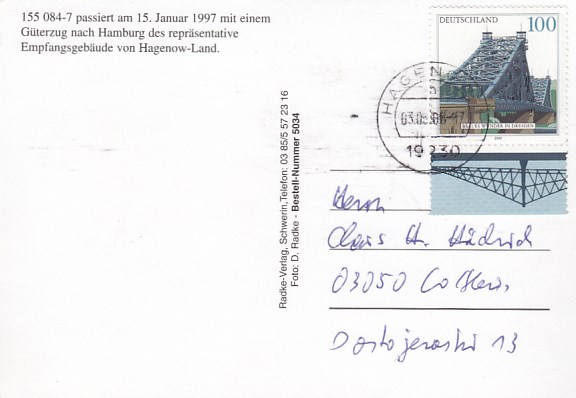 155 084-7 passiert am 15. Januar 1997 mit einem
Güterzug nach Hamburg des repräsentative
Empfangsgebäude von Hagenow-Land.
DEUTSCHLAND 100
BLAUES WUNDER IN DRESDEN
HAGENOW
19230
Radke-Verlag, Schwerin,Telefon: 03 85/5 57 23 16
Foto: D. Radke - Bestell-Nummer 5034
Herrn
H. Hädrich
03050 Cottbus
13